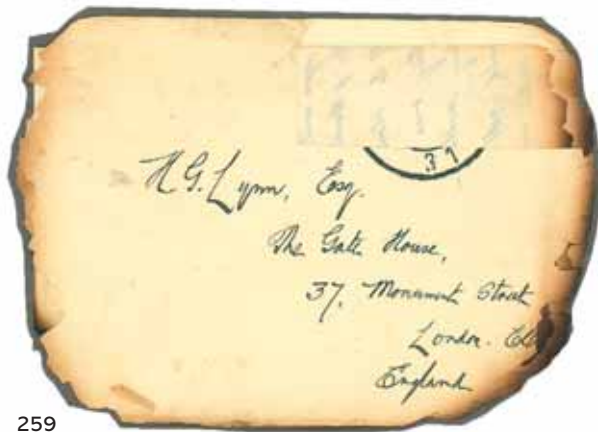 37
H G. Lynn, Esq.
The Gate House,
37, Monument Street
London.
England
259